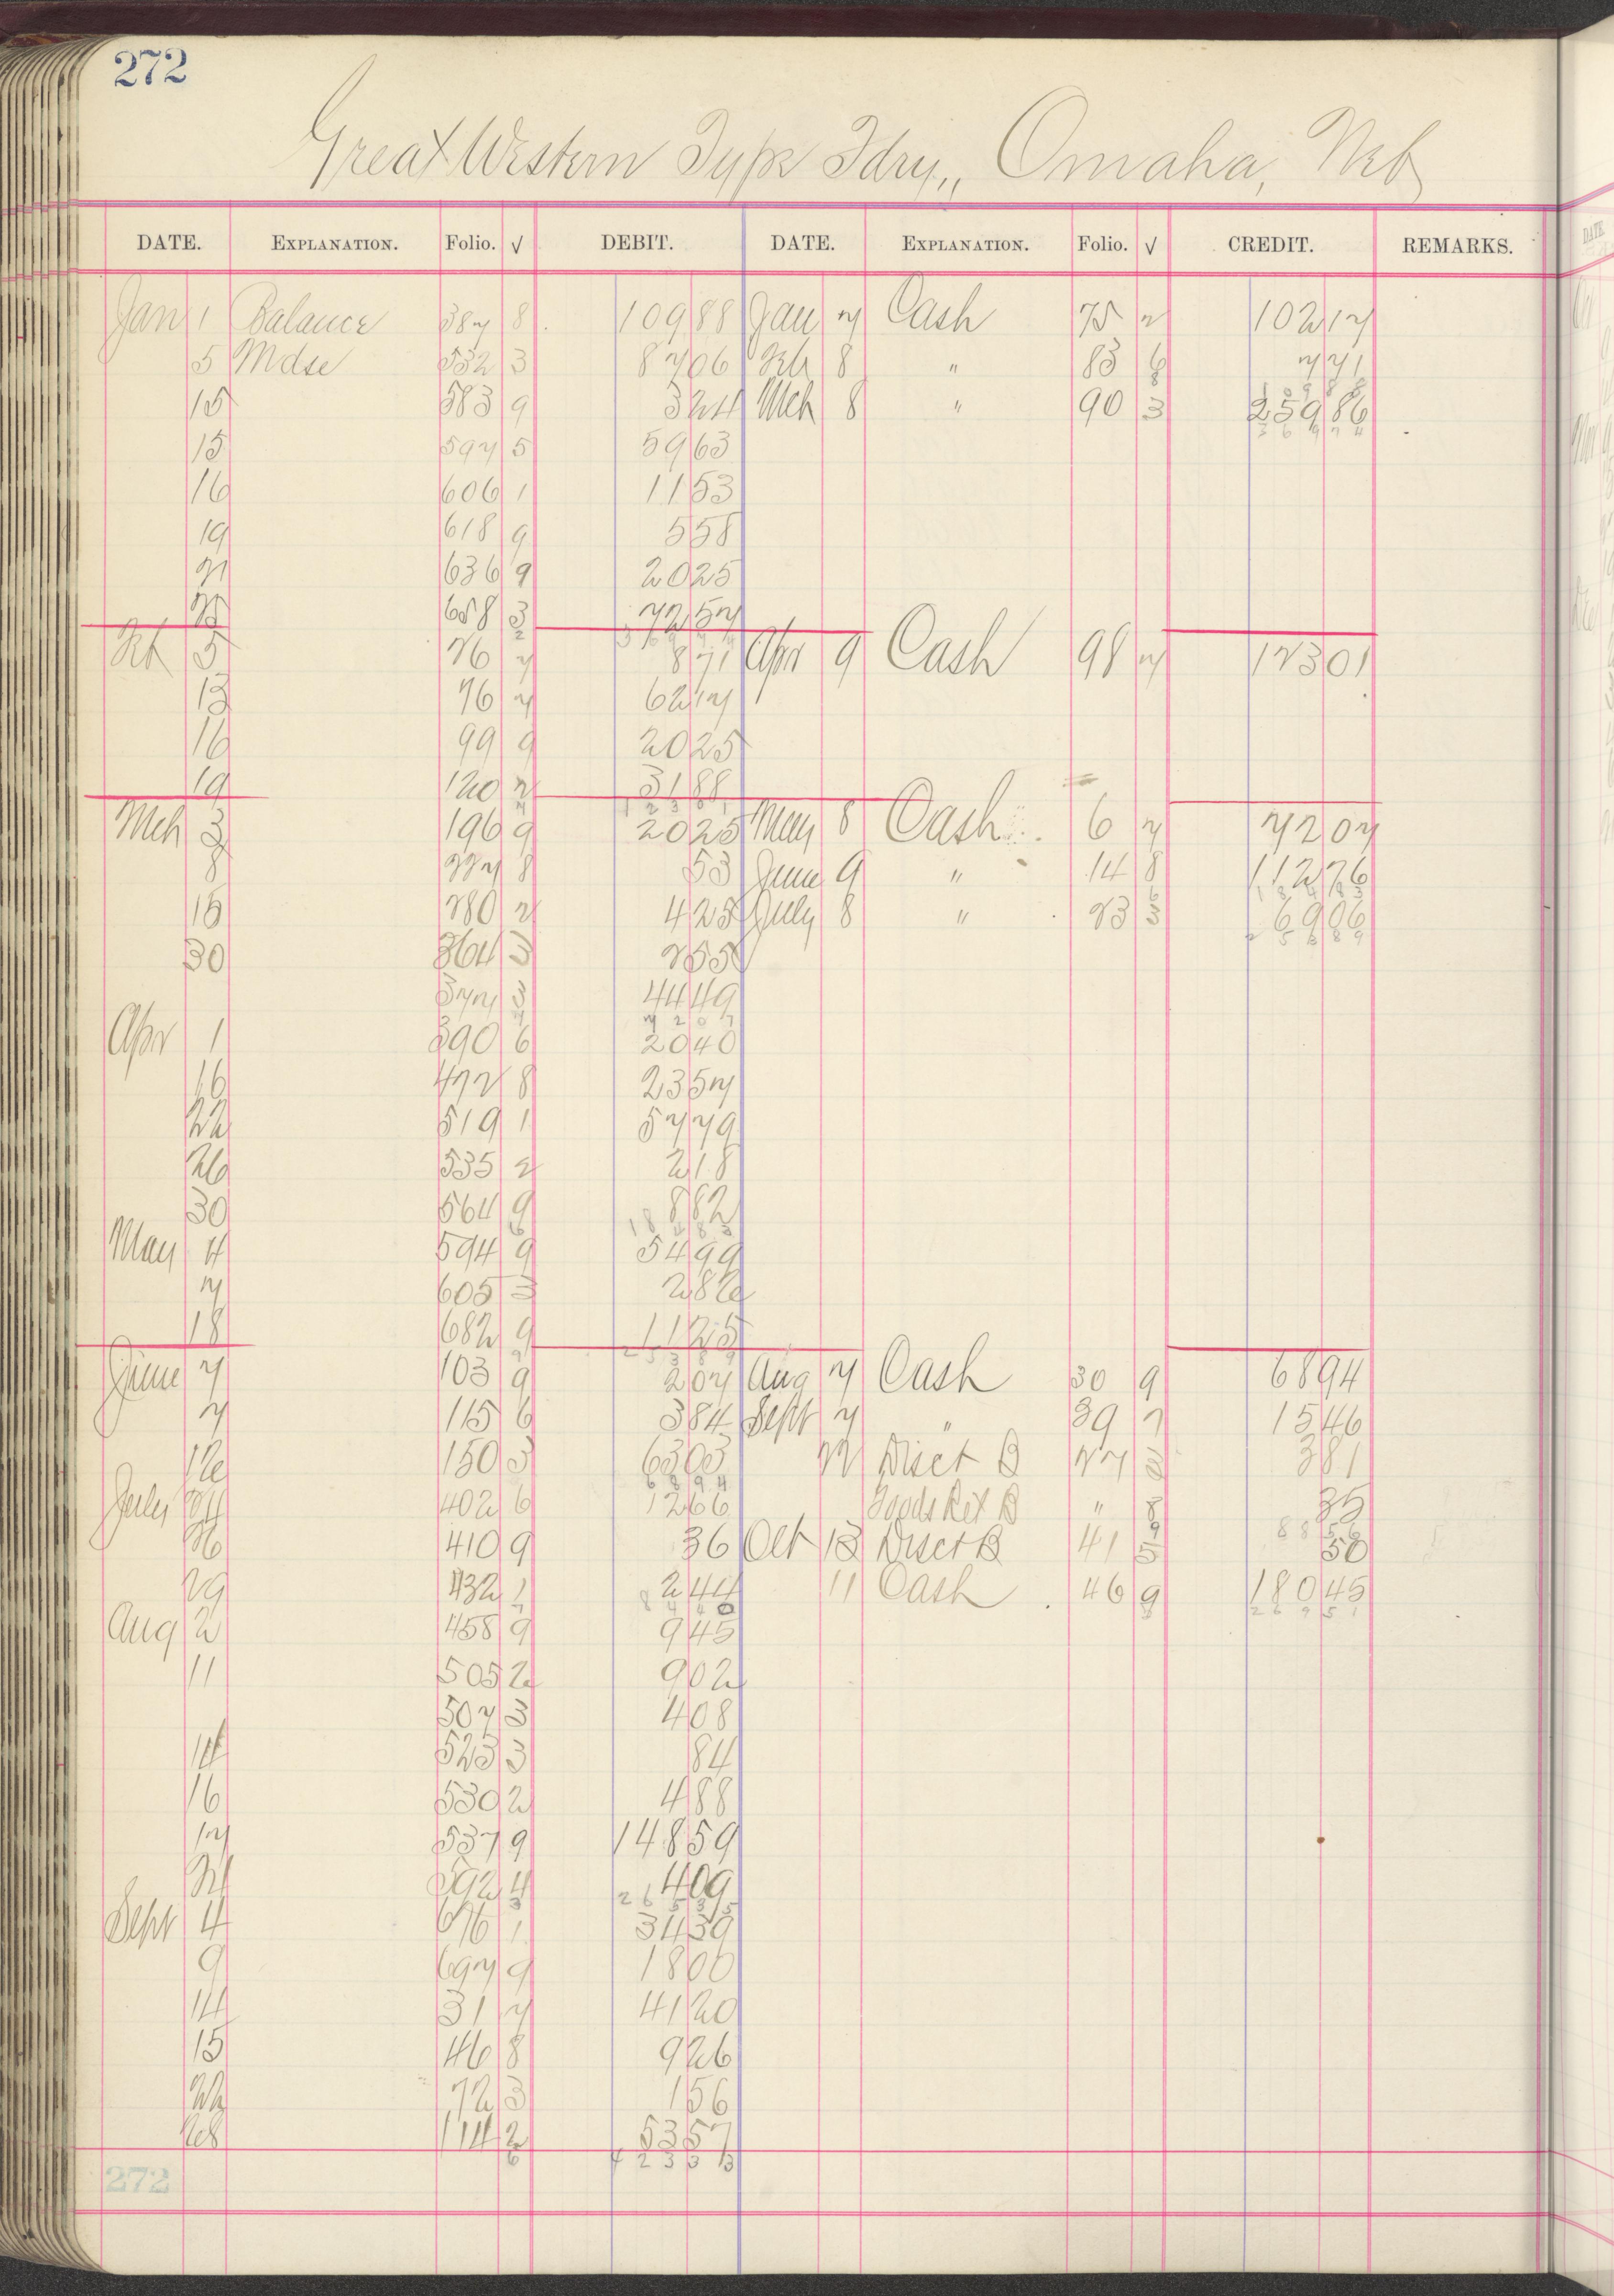 272
Great Western Type Fdry,, Omaha, Neb
DATE. EXPLANATION. Folio. √ DEBIT. DATE. EXPLANATION. Folio. √ CREDIT. REMARKS.
Jan 1 Balance 387 8 109 88 Jan 7 Cash 75 2 102 17
5 Mdse 532 3 87 06 Feb 8 " 83 6 7 71
15 583 9 3 24 Mch 8 " 90 3 259 86
15 597 5 59 63
16 606 1 11 53
19 618 9 5 58
21 636 9 20 25
25 658 3 72 57
Feb 5 76 7 8 71 Apr 9 Cash 98 7 123 01
13 76 7 62 17
16 99 9 20 25
19 120 2 31 88
Mch 3 196 9 20 25 May 8 Cash 6 7 72 07
8 227 8 53 June 9 " 14 8 112 76
15 280 2 4 25 July 8 " 23 3 69 06
30 364 3 2 55
377 3 44 49
7 2 0 7
Apr 1 390 6 20 40
16 472 8 23 57
22 519 1 57 79
26 535 2 2 18
30 564 9 8 62
May 4 594 9 54 99
7 605 3 2 82
18 682 9 11 25
June 7 103 9 2 07 Aug 7 Cash 30 9 68 94
7 115 6 3 84 Sept 7 " 39 7 15 46
12 150 3 63 03 22 Disct B 27 2 3 81
6 8 9 4
July 24 402 6 12 66 Goods Ret B " 8 35
26 410 9 36 Oct 13 Disct B 41 5 50
29 432 1 2 44 11 Cash 46 9 180 45
Aug 2 458 9 9 45
11 505 2 9 02
507 3 4 08
14 523 3 84
16 530 2 4 88
17 537 9 148 59
21 592 4 4 09
Sept 4 676 1 34 39
9 697 9 18 00
14 31 7 41 20
15 46 8 9 26
22 72 3 1 56
28 114 2 53 57
4 2 3 3 3
272